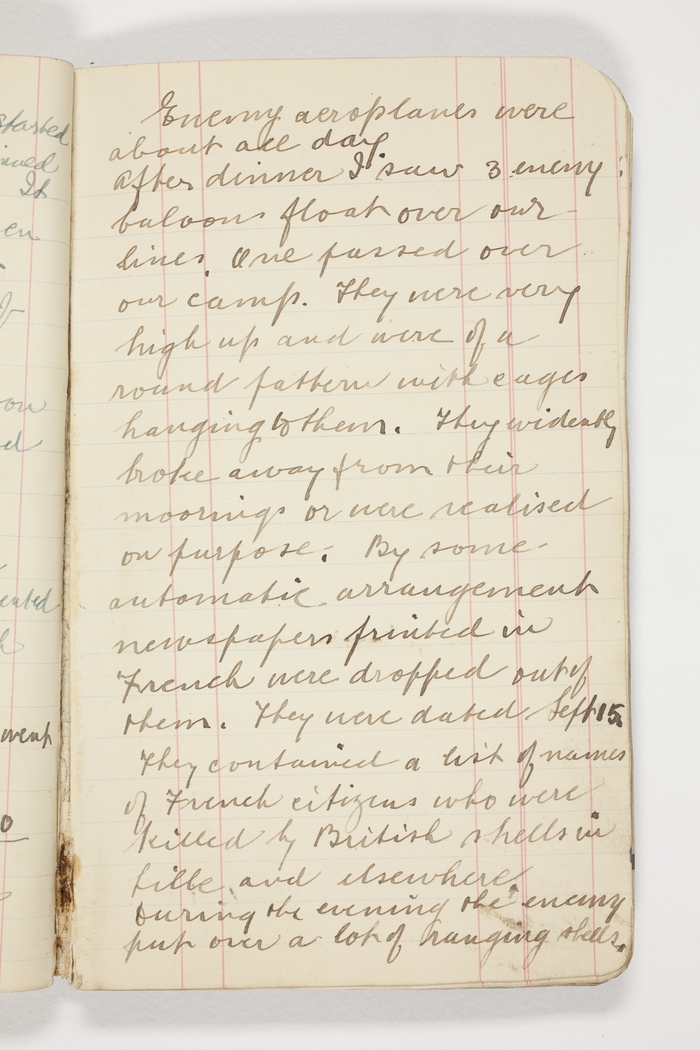 Enemy aeroplanes were
about all day
After dinner I saw 3 enemy
baloons float over our
lines. One passed over
our camp. They were very
high up and were of a
round pattern with cages
hanging to them. They widently
broke away from their
moorings or were realised
on purpose. By some
automatic arrangement
newspapers printed in
French were dropped out of
them. They were dated Sept 15.
They contained a list of names
of French citizens who were
killed by British shells in
Lille and elsewhere
During the evening the enemy
put over a lot of ranging shells.
started
It
en
went